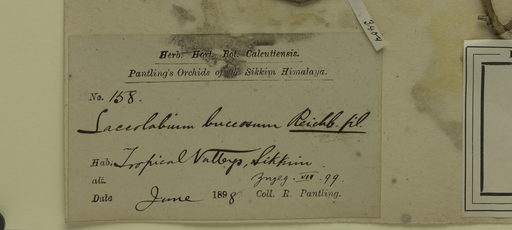 Herb. Hort. Bot. Calcuttensis.
Pantling's Orchids of the Sikkim Himalaya.
No. 158.
Saccolabium buccosum Reichb. fil.
Hab. Tropical Valleys, Sikkim.
alt.
VIII. 99.
Date June 1898 Coll. R. Pantling.